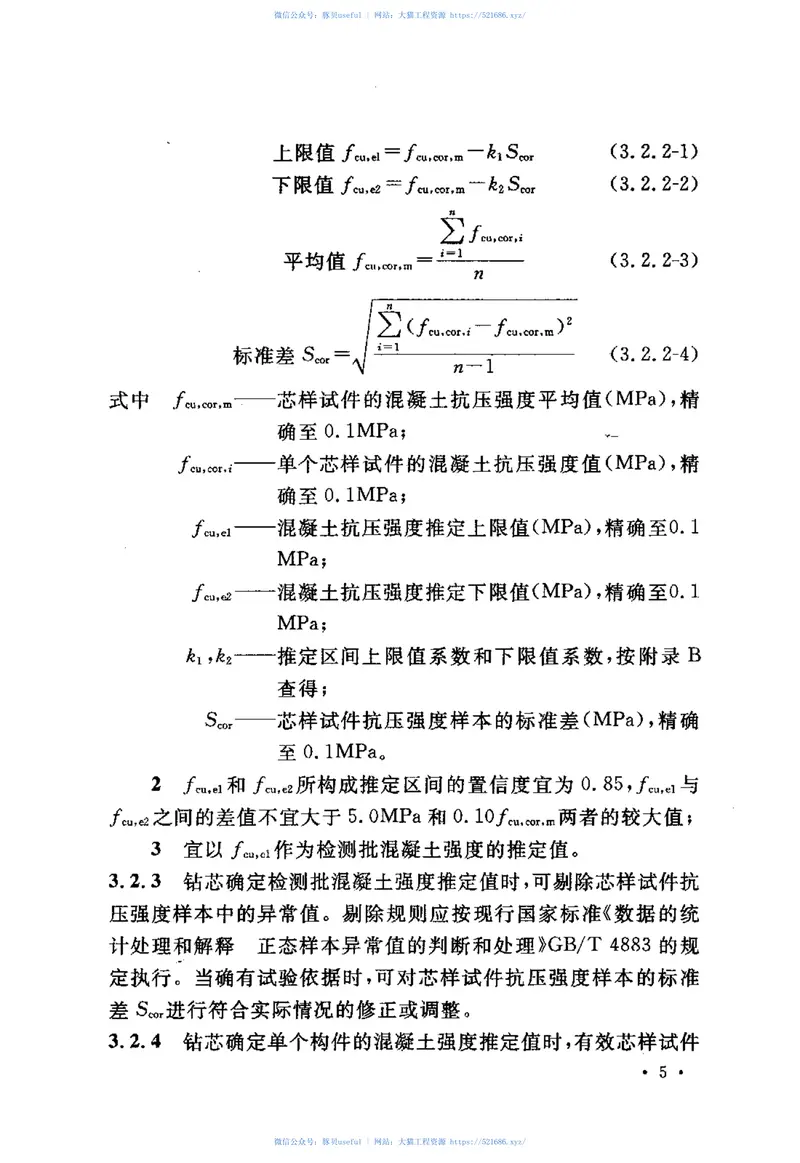 微信公众号：豚贝useful | 网站：大猫工程资源 https://521686.xyz/
上限值 f_cu,e1＝f_cu,cor,m－k₁S_cor (3.2.2-1)
下限值 f_cu,e2＝f_cu,cor,m－k₂S_cor (3.2.2-2)
平均值 f_cu,cor,m＝\frac{\sum_{i=1}^{n} f_{cu,cor,i}}{n} (3.2.2-3)
标准差 S_cor＝\sqrt{\frac{\sum_{i=1}^{n}(f_{cu,cor,i}-f_{cu,cor,m})^2}{n-1}} (3.2.2-4)
式中 f_cu,cor,m——芯样试件的混凝土抗压强度平均值(MPa)，精
确至 0.1MPa；
f_cu,cor,i——单个芯样试件的混凝土抗压强度值(MPa)，精
确至 0.1MPa；
f_cu,e1——混凝土抗压强度推定上限值(MPa)，精确至0.1
MPa；
f_cu,e2——混凝土抗压强度推定下限值(MPa)，精确至0.1
MPa；
k₁，k₂——推定区间上限值系数和下限值系数，按附录 B
查得；
S_cor——芯样试件抗压强度样本的标准差(MPa)，精确
至 0.1MPa。
2 f_cu,e1和 f_cu,e2所构成推定区间的置信度宜为 0.85，f_cu,e1与
f_cu,e2之间的差值不宜大于 5.0MPa 和 0.10f_cu,cor,m两者的较大值；
3 宜以 f_cu,e1作为检测批混凝土强度的推定值。
3.2.3 钻芯确定检测批混凝土强度推定值时，可剔除芯样试件抗
压强度样本中的异常值。剔除规则应按现行国家标准《数据的统
计处理和解释 正态样本异常值的判断和处理》GB/T 4883 的规
定执行。当确有试验依据时，可对芯样试件抗压强度样本的标准
差 S_cor进行符合实际情况的修正或调整。
3.2.4 钻芯确定单个构件的混凝土强度推定值时，有效芯样试件
· 5 ·
微信公众号：豚贝useful | 网站：大猫工程资源 https://521686.xyz/